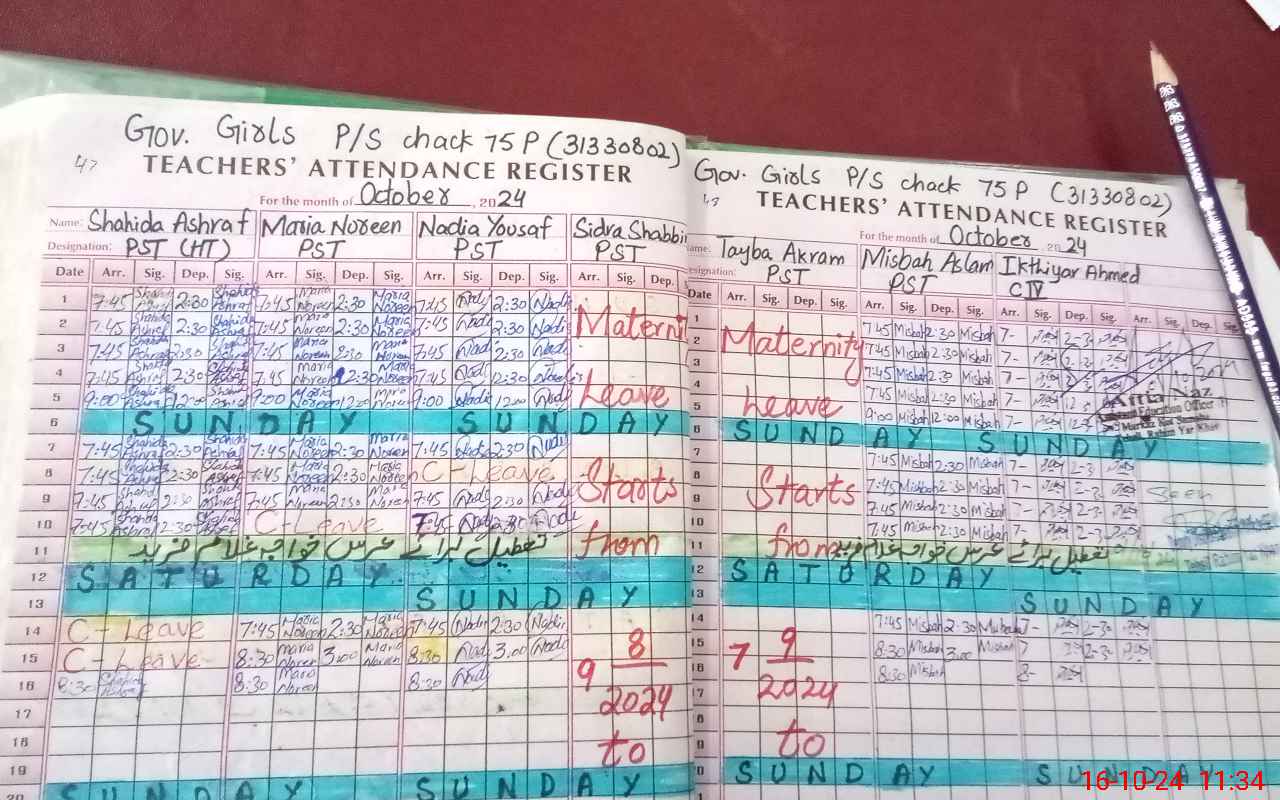 Gov. Girls P/S chack 75 P (31330802)
47 TEACHERS' ATTENDANCE REGISTER
For the month of October, 2024
Name: Shahida Ashraf Maria Noreen Nadia Yousaf Sidra Shabbir
Designation: PST (HT) PST PST PST
Date Arr. Sig. Dep. Sig. Arr. Sig. Dep. Sig. Arr. Sig. Dep. Sig. Arr. Sig. Dep.
1 7:45 Shahida Ashraf 2:30 Shahida Ashraf 7:45 Maria Noreen 2:30 Maria Noreen 7:45 Nadi 2:30 Nadi
2 7:45 Shahida Ashraf 2:30 Shahida Ashraf 7:45 Maria Noreen 2:30 Maria Noreen 7:45 Nadi 2:30 Nadi Materni
3 7:45 Shahida Ashraf 2:30 7:45 Maria Noreen 2:30 Maria Noreen 7:45 Nadi 2:30 Nadi
4 7:45 Ashraf 2:30 7:45 Maria Noreen 2:30 Maria Noreen 7:45 Nadi 2:30
5 9:00 12:00 9:00 Maria Noreen 12:00 Maria Noreen 9:00 Nadi 12:00 Nadi Leave
6 SUNDAY SUNDAY
7 7:45 Shahida Ashraf 2:30 Shahida Ashraf 7:45 Maria Noreen 2:30 Maria Noreen 7:45 Nadi 2:30 Nadi
8 7:45 Shahida Ashraf 2:30 Shahida Ashraf 7:45 Maria Noreen 2:30 Maria Noreen C-Leave
9 7:45 Shahida Ashraf 2:30 Shahida Ashraf 7:45 Maria Noreen 2:30 Maria Noreen 7:45 Nadi 2:30 Nadi Starts
10 7:45 Shahida Ashraf 2:30 Shahida Ashraf C-Leave 7:45 Nadi 2:30 Nadi
11 تعطیل برائے عرس خواجہ غلام فرید from
12 SATURDAY
13 SUNDAY
14 C-Leave 7:45 Maria Noreen 2:30 Maria Noreen 7:45 Nadi 2:30 Nadi
15 C-Leave 8:30 Maria Noreen 3:00 Maria Noreen 8:30 Nadi 3:00 Nadi 9 8
16 8:30 Shahida Ashraf 8:30 Maria Noreen 8:30 Nadi
17 2024
18 to
19
20 SUNDAY SUNDAY
Gov. Girls P/S chack 75 P (31330802)
TEACHERS' ATTENDANCE REGISTER
For the month of October 2024
ame: Tayba Akram Misbah Aslam Ikthiyar Ahmed
esignation: PST PST CIV
Date Arr. Sig. Dep. Sig. Arr. Sig. Dep. Sig. Arr. Sig. Dep. Sig. Arr. Sig. Dep. Sig.
1 7:45 Misbah 2:30 Misbah 7-
2 Maternity 7:45 Misbah 2:30 Misbah 7-
3 7:45 Misbah 2:30 Misbah 7-
4 7:45 Misbah 2:30 Misbah 7-
5 Leave 9:00 Misbah 12:00 Misbah
Education Officer
6 SUNDAY SUNDAY
7 7:45 Misbah 2:30 Misbah 7-
8 Starts 7:45 Misbah 2:30 Misbah 7- Seen
9 7:45 Misbah 2:30 Misbah 7-
10 7:45 Misbah 2:30 Misbah 7-
11 from تعطیل برائے عرس خواجہ غلام فرید
12 SATURDAY
13 SUNDAY
14 7:45 Misbah 2:30 Misbah 7-
15 7 9 8:30 Misbah 3:00 Misbah
16 8:30 Misbah 8-
17 2024
8
9 to
SUNDAY SUNDAY
16-10-24 11:34